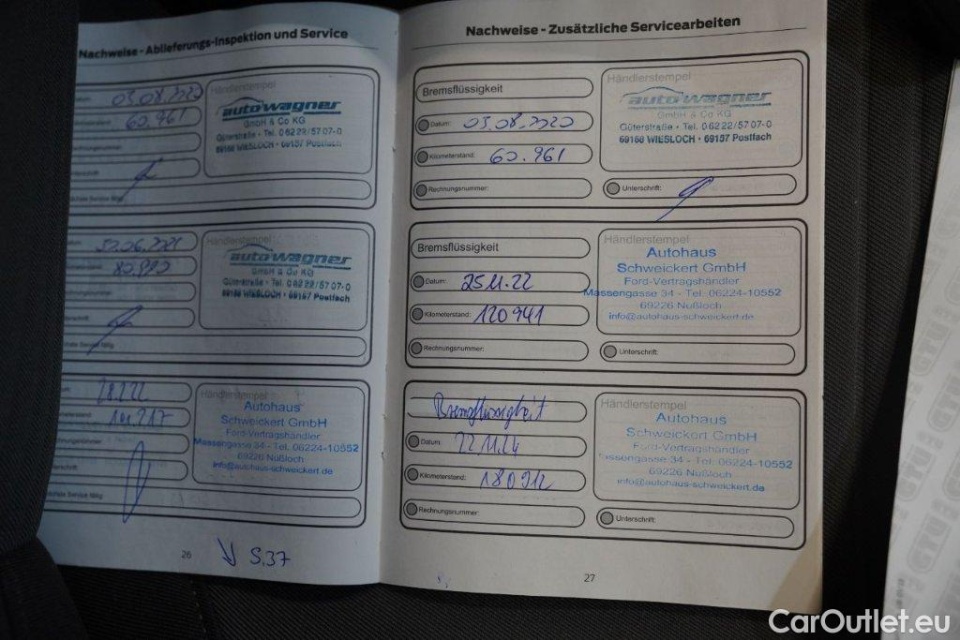 Nachweise - Ablieferungs-Inspektion und Service
03.08.2020
60.961
Händlerstempel
autowagner
GmbH & Co KG
Güterstraße · Tel. 0 62 22 / 57 07-0
69168 WIESLOCH · 69157 Postfach
Händlerstempel
autowagner
GmbH & Co KG
Güterstraße · Tel. 0 62 22 / 57 07-0
69168 WIESLOCH · 69157 Postfach
Händlerstempel
Autohaus
Schweickert GmbH
Ford-Vertragshändler
Massengasse 34 - Tel. 06224-10552
69226 Nußloch
info@autohaus-schweickert.de
26
S.37
Nachweise - Zusätzliche Servicearbeiten
Bremsflüssigkeit
Datum: 03.08.2020
Kilometerstand: 60.961
Rechnungsnummer:
Händlerstempel
autowagner
GmbH & Co KG
Güterstraße · Tel. 0 62 22 / 57 07-0
69168 WIESLOCH · 69157 Postfach
Unterschrift:
Bremsflüssigkeit
Datum: 25.11.22
Kilometerstand: 120941
Rechnungsnummer:
Händlerstempel
Autohaus
Schweickert GmbH
Ford-Vertragshändler
Massengasse 34 - Tel. 06224-10552
69226 Nußloch
info@autohaus-schweickert.de
Unterschrift:
Bremsflüssigkeit
Datum: 22.11.24
Kilometerstand: 180912
Rechnungsnummer:
Händlerstempel
Autohaus
Schweickert GmbH
Ford-Vertragshändler
Massengasse 34 - Tel. 06224-10552
69226 Nußloch
info@autohaus-schweickert.de
Unterschrift:
27
CarOutlet.eu